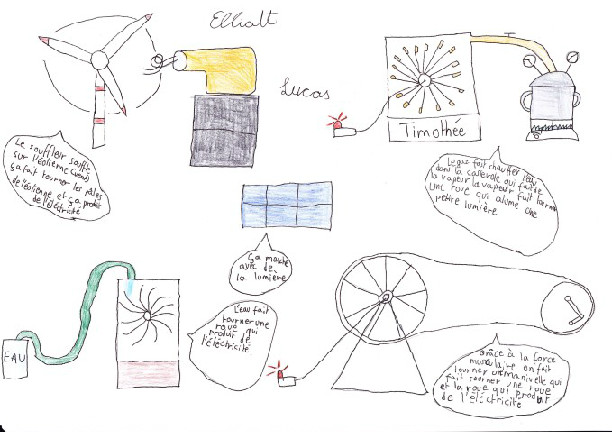 Elliott
Lucas
Timothée
Le souffleur souffle
sur l'éolienne (vent)
ça fait tourner les pâles
de l'éolienne et ça produit
de l'électricité
Le gaz fait chauffer l'eau
dans la casserole qui fait de
la vapeur la vapeur fait tourner
une roue qui alume une
petite lumière
Ça marche
avec de
la lumière
EAU
L'eau fait
tourner une
roue qui
produi de
l'éléctricité
Grâce à la force
musculaire on fait
tourner une manivelle qui
fait tourner une roue
et la roue qui produit
de l'électricité